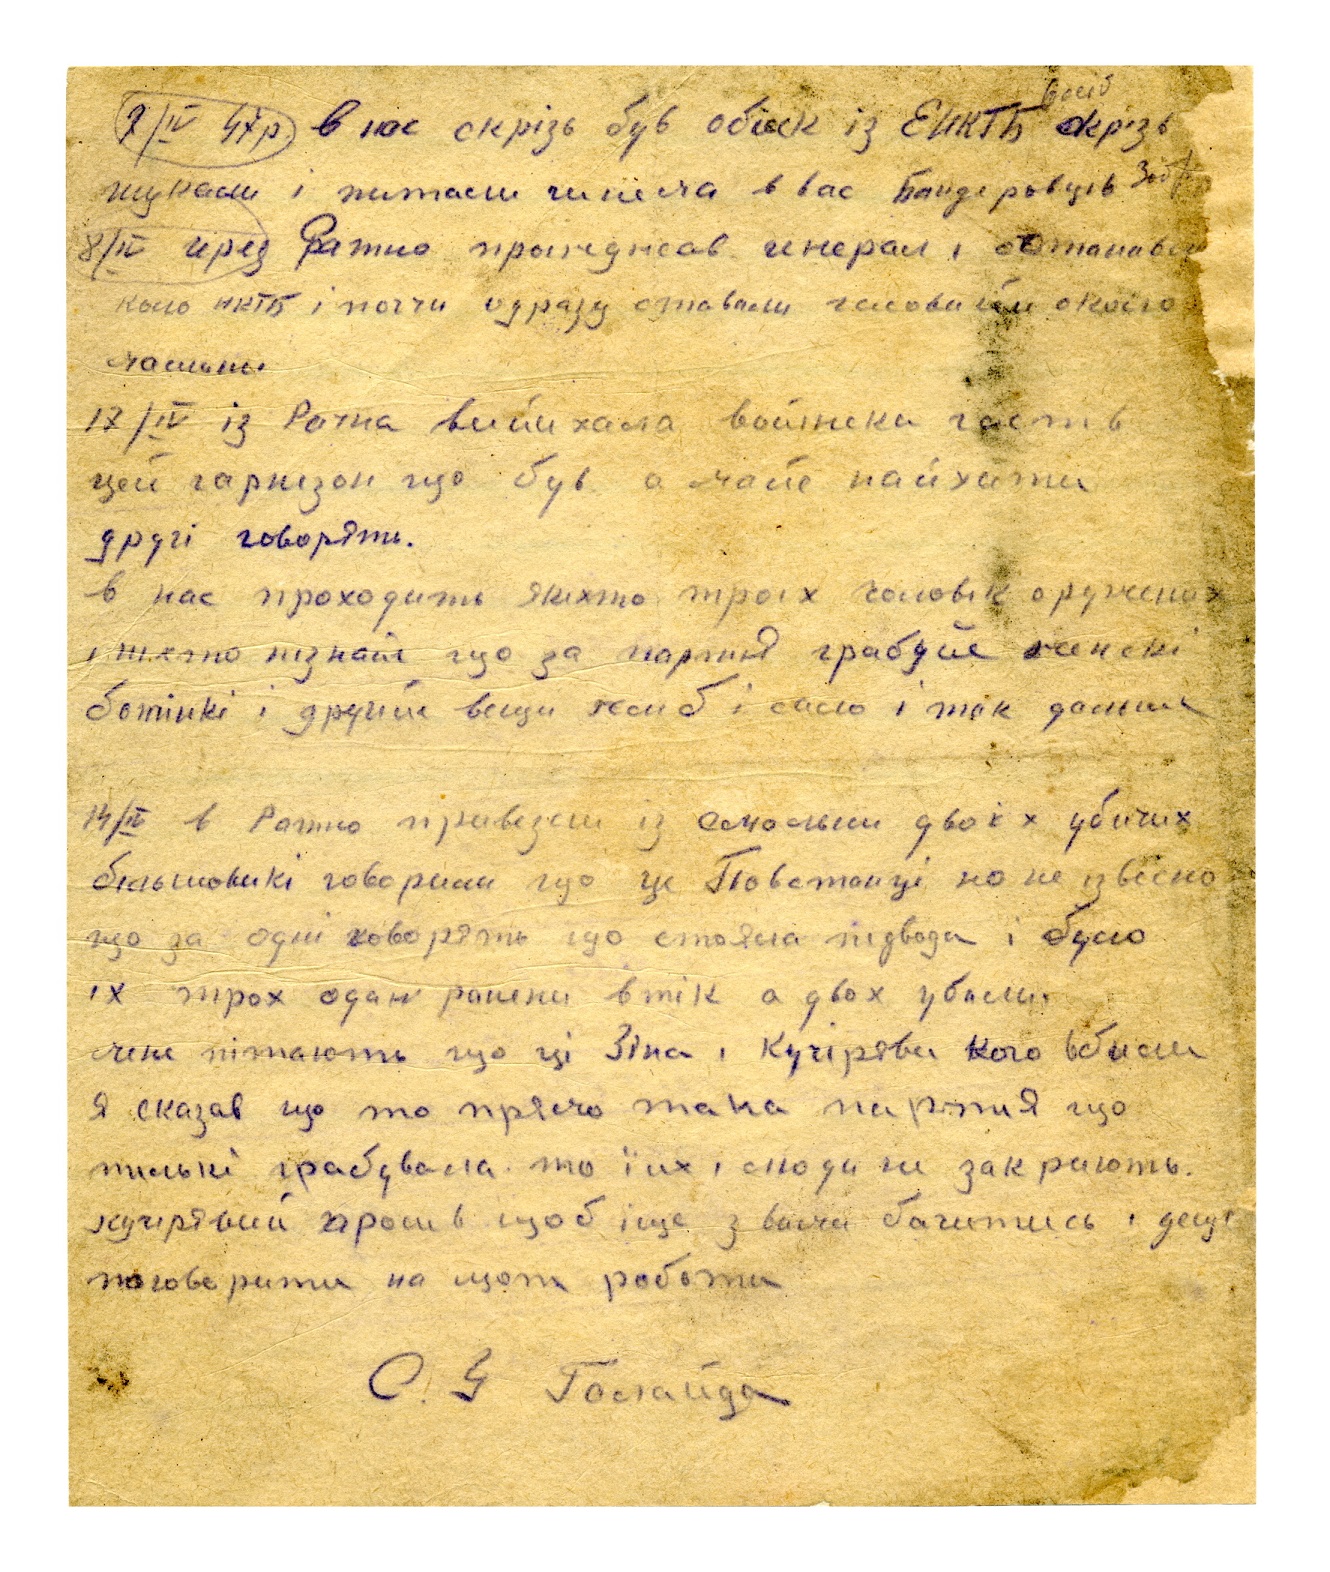 7/IV 47р в нас скрізь був обіск із ЕНКТБ скрізь
шукали і питали чи нема в вас Бандеровців
8/IV через Ратно проїжджав генерал і
коло НКТБ і почти одразу ставали часовийи около
машини
17/IV із Ратна вийихала войінска часть в
цей гарнізон що був а майе найхати
другі говорять.
в нас проходить якихто троіх чоловік оруженах
і нихто нізнайі що за партия грабуйе женскі
ботінкі і другийи вещи хлиб і сало і так дальши
14/IV в Ратно привезли із двоіх убитих
більшовикі говорили що це Повстанці но не ізвісно
що за одні говорять що стояла підвода і було
іх трох один ранени втік а двох убили.
мене пітають що ці Зіна і Кучіряви кого вбили
Я сказав що то прямо така партия що
тилькі грабувала. то їих і люди ни закриють.
кучірявий просив щоб іще з вами бачитись і дещо
поговорити на щот работи
С. У Голайда